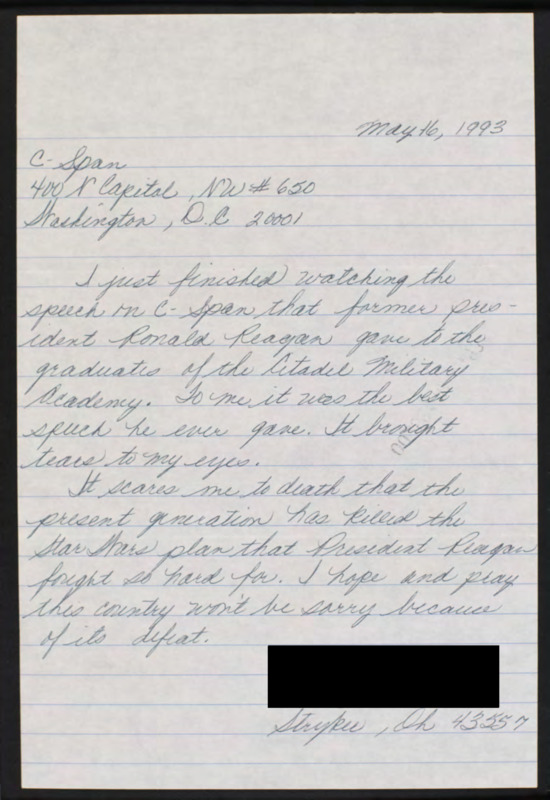 May 16, 1993
C-Span
400 N Capitol, NW # 650
Washington, D.C 20001
I just finished watching the
speech on C-Span that former pres-
ident Ronald Reagan gave to the
graduates of the Citadel Military
Academy. To me it was the best
speech he ever gave. It brought
tears to my eyes.
It scares me to death that the
present generation has killed the
Star Wars plan that President Reagan
fought so hard for. I hope and pray
this country won't be sorry because
of its defeat.
Stryker, Oh 43557